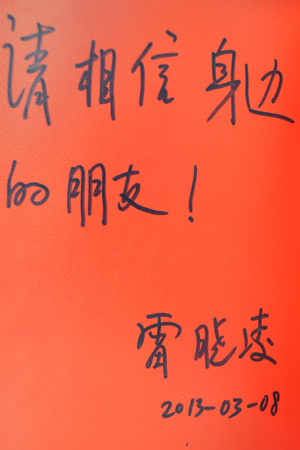 请相信身边
的朋友!
雷晓凌
2013-03-08